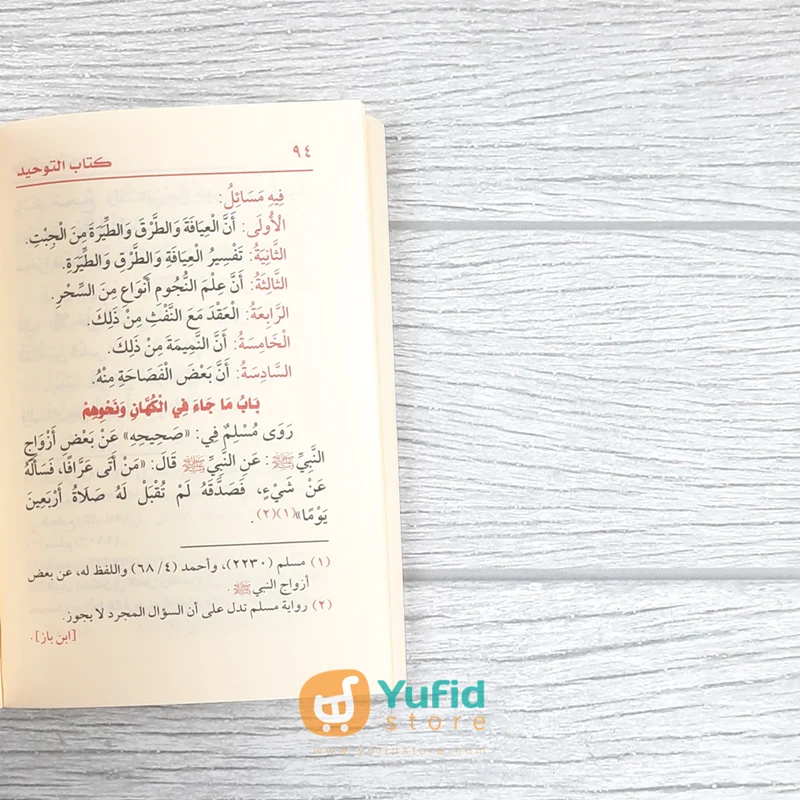 ٩٤ كتاب التوحيد
فِيهِ مَسَائِلُ:
الْأُولَى: أَنَّ الْعِيَافَةَ وَالطَّرْقَ وَالطِّيَرَةَ مِنَ الْجِبْتِ.
الثَّانِيَةُ: تَفْسِيرُ الْعِيَافَةِ وَالطَّرْقِ وَالطِّيَرَةِ.
الثَّالِثَةُ: أَنَّ عِلْمَ النُّجُومِ أَنْوَاعٍ مِنَ السِّحْرِ.
الرَّابِعَةُ: الْعَقْدَ مَعَ النَّفْثِ مِنْ ذَلِكَ.
الْخَامِسَةُ: أَنَّ النَّمِيمَةَ مِنْ ذَلِكَ.
السَّادِسَةُ: أَنَّ بَعْضَ الْفَصَاحَةِ مِنْهُ.
بَابُ مَا جَاءَ فِي الْكُهَّانِ وَنَحْوِهِمْ
رَوَى مُسْلِمٌ فِي: «صَحِيحِهِ» عَنْ بَعْضِ أَزْوَاجِ
النَّبِيِّ ﷺ: عَنِ النَّبِيِّ ﷺ قَالَ: «مَنْ أَتَى عَرَّافًا، فَسَأَلَهُ
عَنْ شَيْءٍ، فَصَدَّقَهُ لَمْ تُقْبَلْ لَهُ صَلَاةُ أَرْبَعِينَ
يَوْمًا»(١)(٢).
(١) مسلم (٢٢٣٠)، وأحمد (٤/ ٦٨) واللفظ له، عن بعض
أزواج النبي ﷺ.
(٢) رواية مسلم تدل على أن السؤال المجرد لا يجوز.
[ابن باز].
Yufid
store
www.yufidstore.com